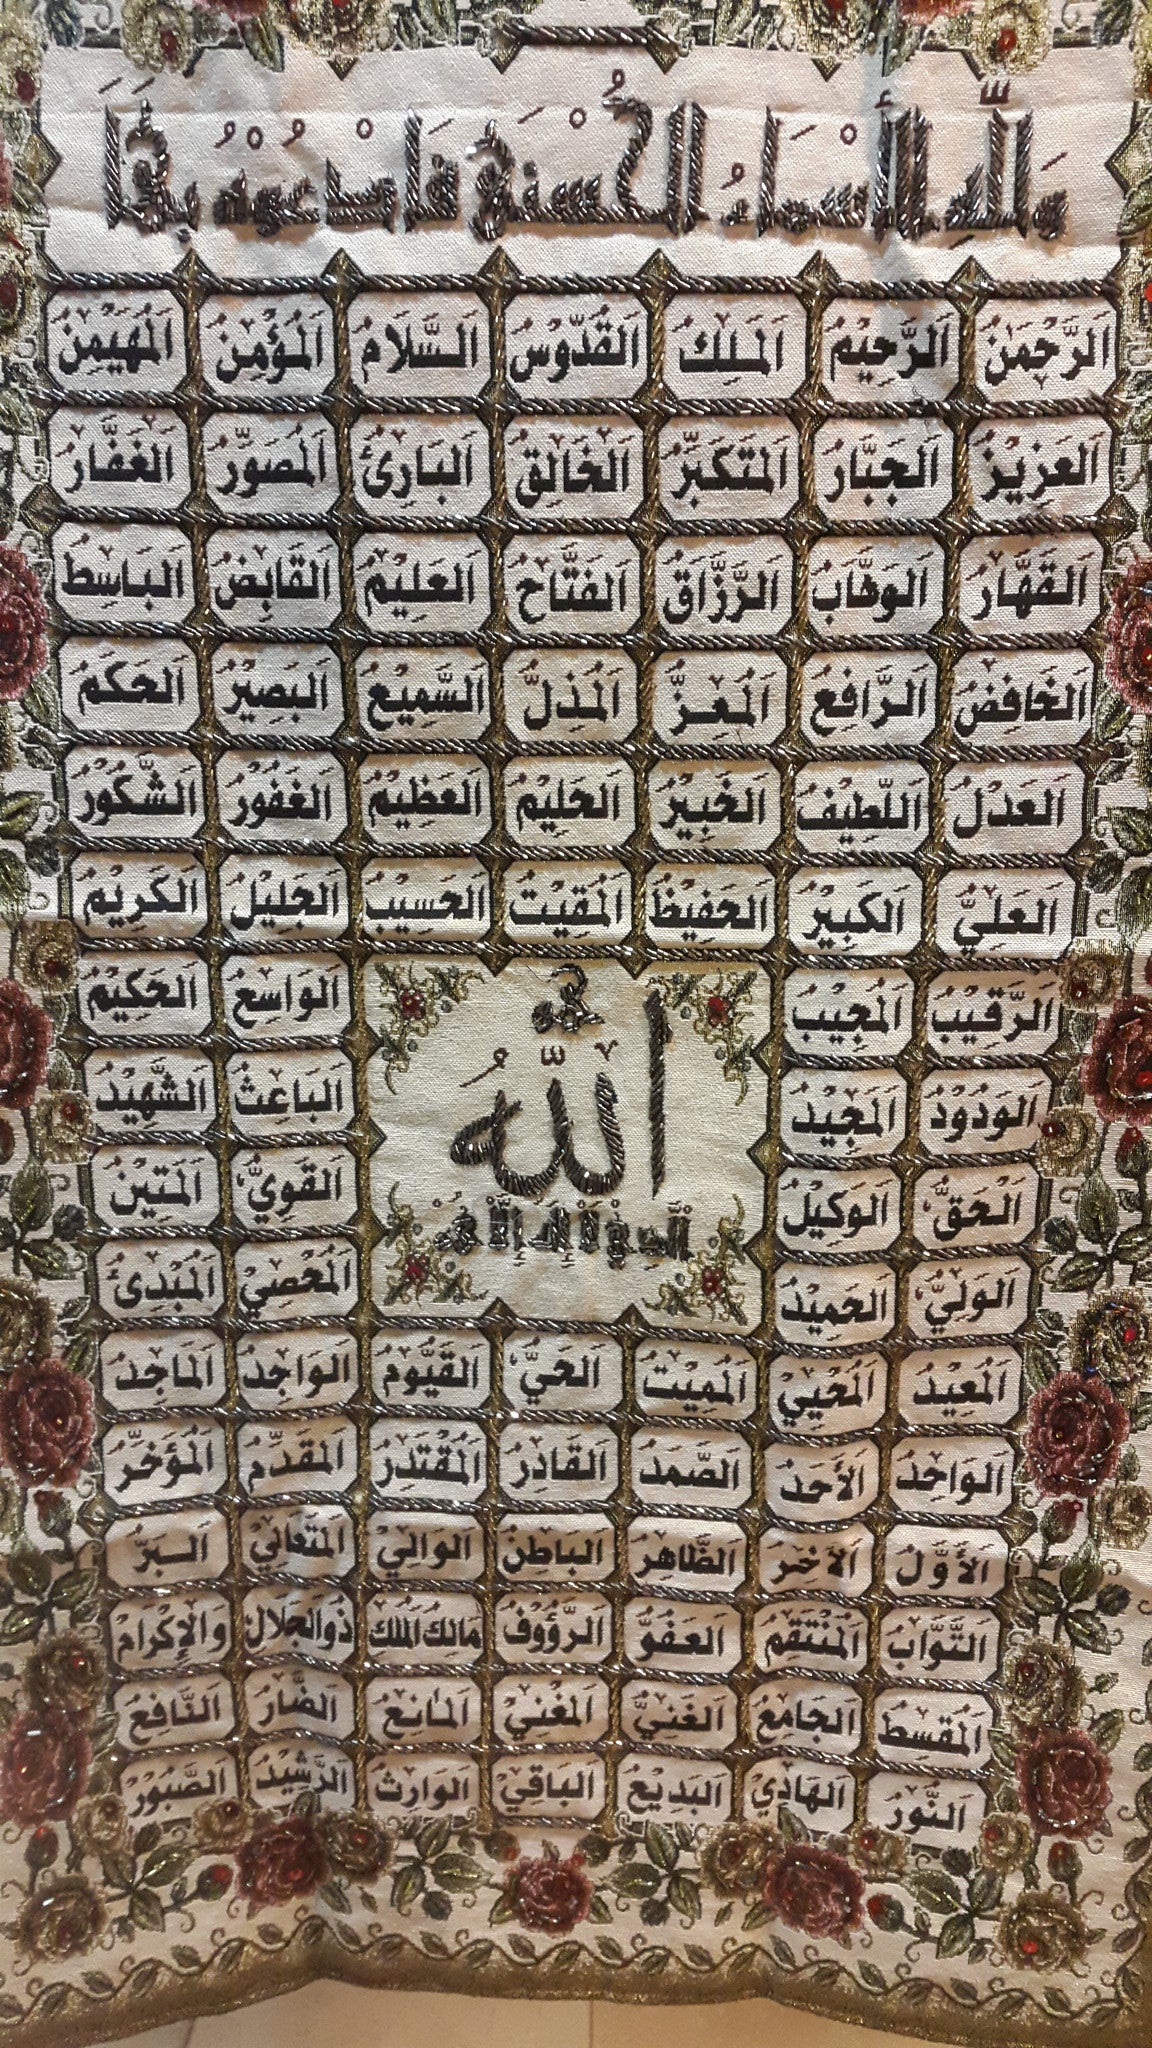 وَلِلَّهِ الْأَسْمَاءُ الْحُسْنَى فَادْعُوهُ بِهَا
اَلرَّحْمٰنُ اَلرَّحِيْمُ اَلْمَلِكُ اَلْقُدُّوْسُ اَلسَّلَامُ اَلْمُؤْمِنُ اَلْمُهَيْمِنُ
اَلْعَزِيْزُ اَلْجَبَّارُ اَلْمُتَكَبِّرُ اَلْخَالِقُ اَلْبَارِئُ اَلْمُصَوِّرُ اَلْغَفَّارُ
اَلْقَهَّارُ اَلْوَهَّابُ اَلرَّزَّاقُ اَلْفَتَّاحُ اَلْعَلِيْمُ اَلْقَابِضُ اَلْبَاسِطُ
اَلْخَافِضُ اَلرَّافِعُ اَلْمُعِزُّ اَلْمُذِلُّ اَلسَّمِيْعُ اَلْبَصِيْرُ اَلْحَكَمُ
اَلْعَدْلُ اَللَّطِيْفُ اَلْخَبِيْرُ اَلْحَلِيْمُ اَلْعَظِيْمُ اَلْغَفُوْرُ اَلشَّكُوْرُ
اَلْعَلِيُّ اَلْكَبِيْرُ اَلْحَفِيْظُ اَلْمُقِيْتُ اَلْحَسِيْبُ اَلْجَلِيْلُ اَلْكَرِيْمُ
اَلرَّقِيْبُ اَلْمُجِيْبُ اَلْوَاسِعُ اَلْحَكِيْمُ
اَلْوَدُوْدُ اَلْمَجِيْدُ اَلْبَاعِثُ اَلشَّهِيْدُ
اَلْحَقُّ اَلْوَكِيْلُ اَلْقَوِيُّ اَلْمَتِيْنُ
اَلْوَلِيُّ اَلْحَمِيْدُ اَلْمُحْصِيْ اَلْمُبْدِئُ
اَللّٰهُ
اَلَّذِيْ لَا إِلٰهَ إِلَّا هُوَ
اَلْمُعِيْدُ اَلْمُحْيِيْ اَلْمُمِيْتُ اَلْحَيُّ اَلْقَيُّوْمُ اَلْوَاجِدُ اَلْمَاجِدُ
اَلْوَاحِدُ اَلْأَحَدُ اَلصَّمَدُ اَلْقَادِرُ اَلْمُقْتَدِرُ اَلْمُقَدِّمُ اَلْمُؤَخِّرُ
اَلْأَوَّلُ اَلْآخِرُ اَلظَّاهِرُ اَلْبَاطِنُ اَلْوَالِيْ اَلْمُتَعَالِيْ اَلْبَرُّ
اَلتَّوَّابُ اَلْمُنْتَقِمُ اَلْعَفُوُّ اَلرَّؤُوْفُ مَالِكُ الْمُلْكِ ذُوالْجَلَالِ وَالْإِكْرَامِ
اَلْمُقْسِطُ اَلْجَامِعُ اَلْغَنِيُّ اَلْمُغْنِيْ اَلْمَانِعُ اَلضَّارُّ اَلنَّافِعُ
اَلنُّوْرُ اَلْهَادِيْ اَلْبَدِيْعُ اَلْبَاقِيْ اَلْوَارِثُ اَلرَّشِيْدُ اَلصَّبُوْرُ